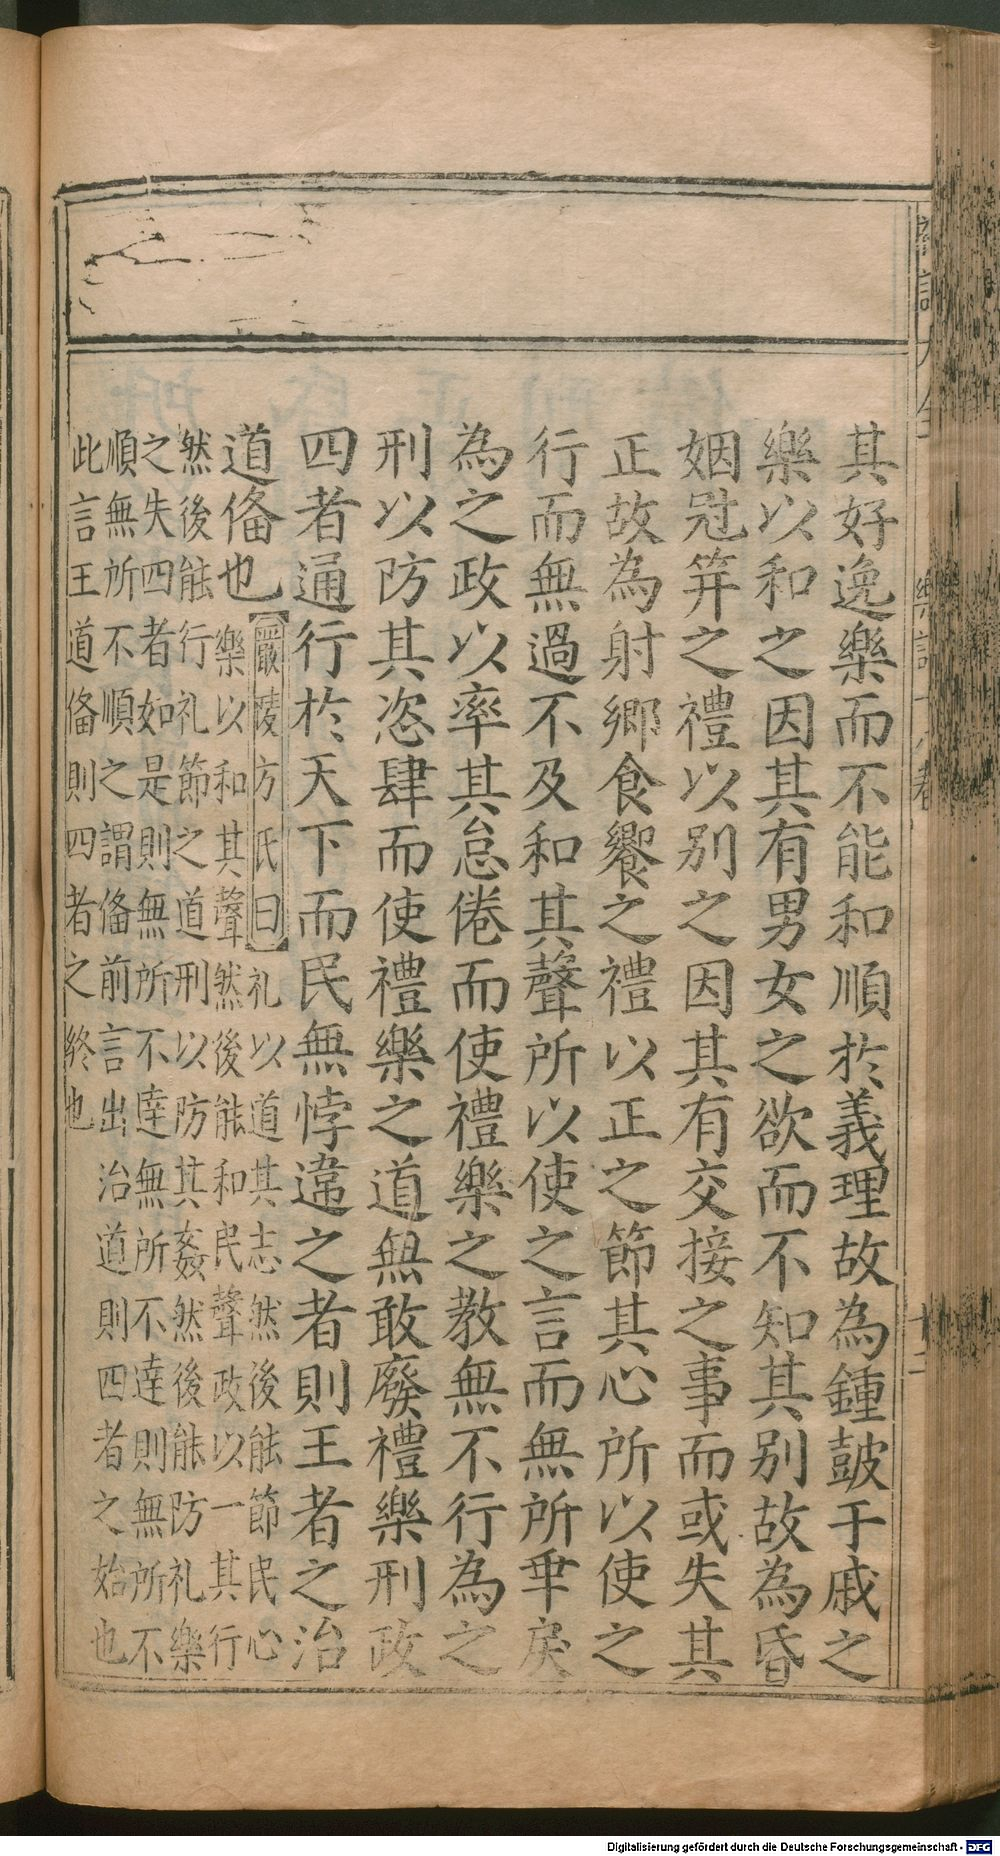 其好逸樂而不能和順於義理故為鍾鼓干戚之
樂以和之因其有男女之欲而不知其別故為昏
姻冠笄之禮以別之因其有交接之事而或失其
正故為射鄉食饗之禮以正之節其心所以使之
行而無過不及和其聲所以使之言而無所乖戾
為之政以率其怠倦而使禮樂之教無不行為之
刑以防其恣肆而使禮樂之道無敢廢禮樂刑政
四者通行於天下而民無悖違之者則王者之治
道俻也
嚴陵方氏曰
礼以道其志然後能節民心
樂以和其聲然後能和民聲政以一其行
然後能行礼節之道刑以防其姦然後能防礼樂
之失四者如是則無所不達無所不達則無所不
順無所不順之謂俻前言出治道則四者之始也
此言王道俻則四者之終也
樂記十八卷
Digitalisierung gefördert durch die Deutsche Forschungsgemeinschaft - DFG